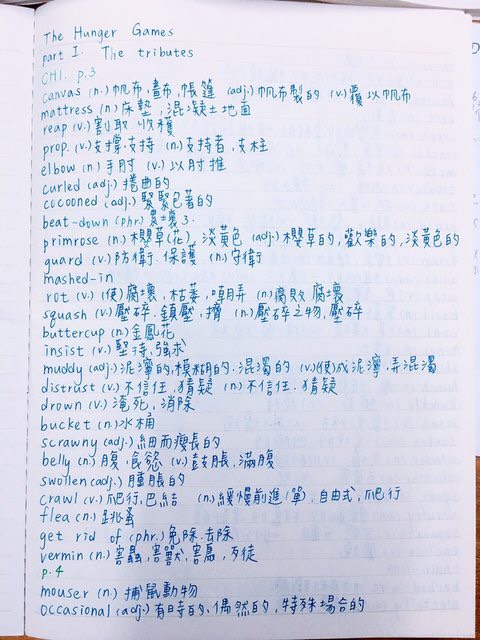 The Hunger Games
part I. The tributes
CH1. p.3
canvas (n.) 帆布、畫布、帳篷 (adj.) 帆布製的 (v.) 覆以帆布
mattress (n.) 床墊,混凝土地面
reap (v.) 割取.收穫
prop. (v.) 支撐.支持 (n.) 支持者,支柱
elbow (n.) 手肘 (v.) 以肘推
curled (adj.) 捲曲的
cocooned (adj.) 緊緊包著的
beat-down (phr.) 壞
primrose (n.) 櫻草(花),淡黃色 (adj.) 櫻草的,歡樂的,淡黃色的
guard (v.) 防衛.保護 (n.) 守衛
mashed-in
rot (v.) (使)腐壞,枯萎,嘲弄 (n.) 腐敗.腐壞
squash (v.) 壓碎.鎮壓,擠 (n.) 壓碎之物,壓碎
buttercup (n.) 金鳳花
insist (v.) 堅持.強求
muddy (adj.) 泥濘的,模糊的.混濁的 (v.) (使)成泥濘,弄混濁
distrust (v.) 不信任.猜疑 (n.) 不信任.猜疑
drown (v.) 淹死,消除
bucket (n.) 水桶
scrawny (adj.) 細而瘦長的
belly (n.) 腹,食慾 (v.) 鼓脹,滿腹
swollen (adj.) 腫脹的
crawl (v.) 爬行,巴結 (n.) 緩慢前進(單),自由式,爬行
flea (n.) 跳蚤
get rid of (phr.) 免除.去除
vermin (n.) 害蟲,害獸,害鳥,歹徒
p.4
mouser (n.) 捕鼠動物
occasional (adj.) 有時的.偶然的,特殊場合的